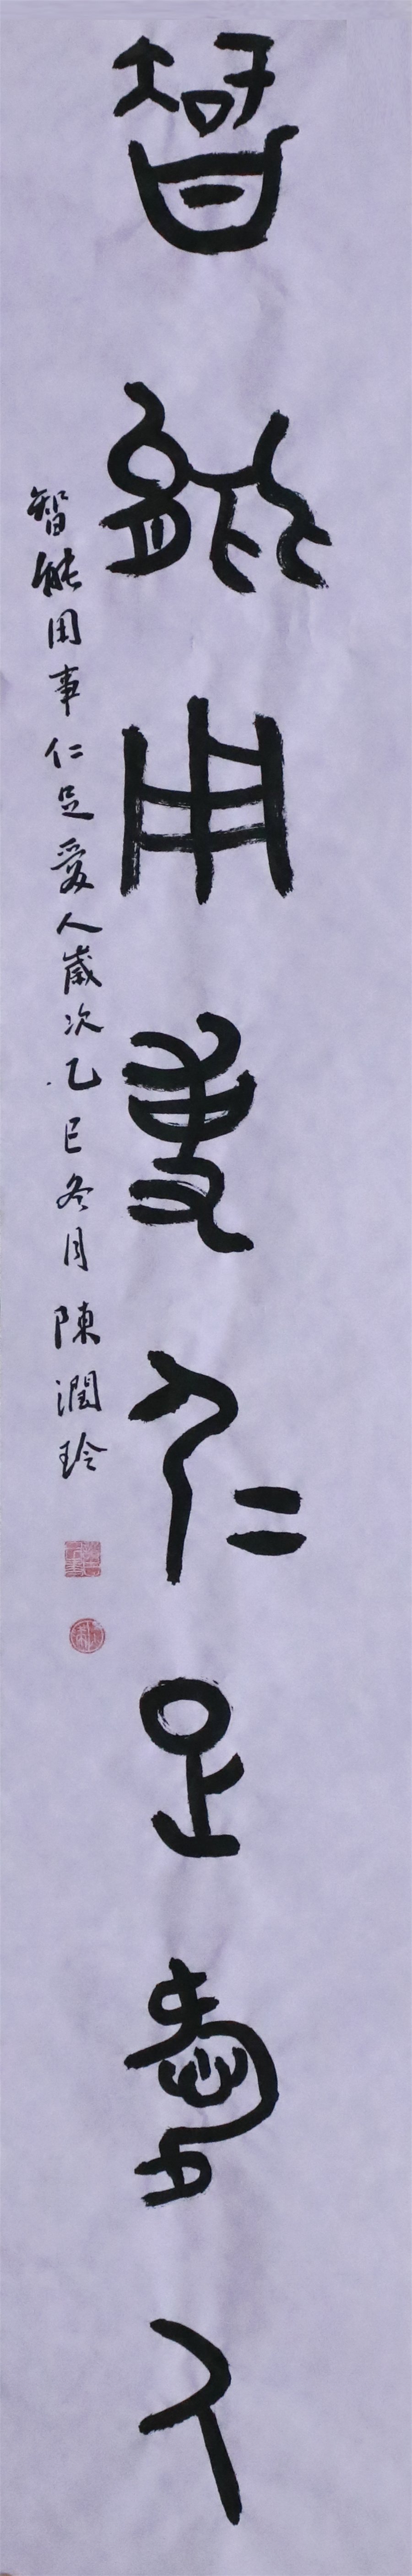 智能用事仁足愛人
智能用事仁足愛人歲次乙巳冬月陳潤玲